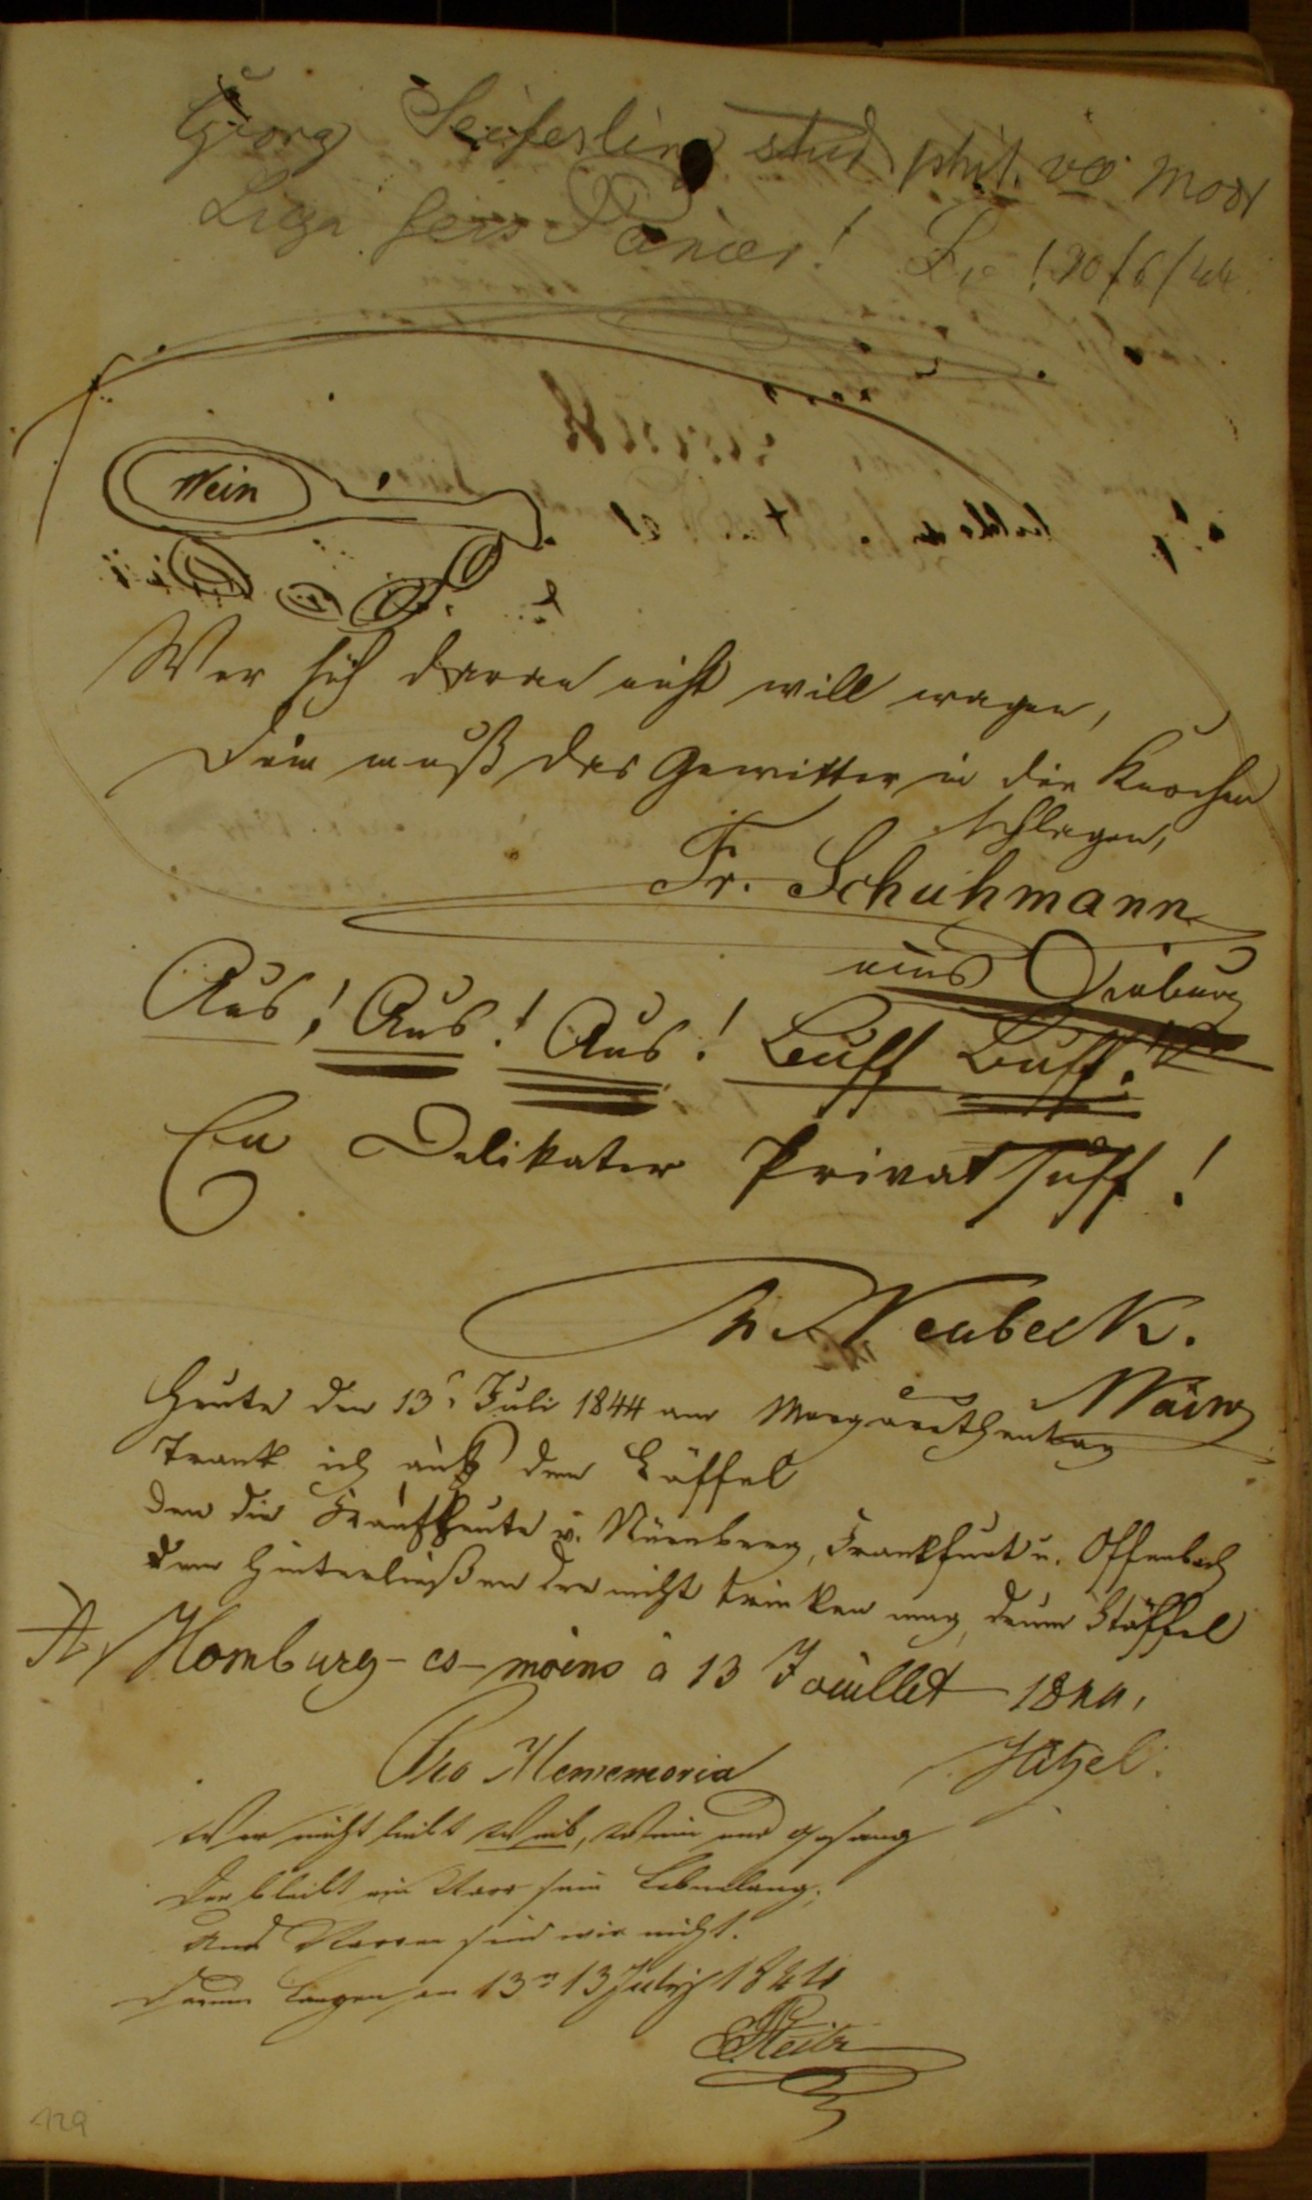 Georg Seiferling stud phil.
Liga sei's Panier! 30/6/44
Wein
Wer sich daran nicht will wagen,
Dem muß das Gewitter in die Knochen
schlagen,
Fr. Schuhmann
aus Dieburg
Aus! Aus! Aus! Buff Buff!
En Delikater Privat Suff!
Neubeck.
Mainz
Heute den 13. Juli 1844 am Margarethentag
Trank ich auß dem Löffel
den die Kaufleute v. Nürnberg, Frankfurt u. Offenbach
Hinterließen der nicht trinken mag, Stöffel
Homburg-es-moins à 13 Jouillet 1844.
Pro Memoria
Wer nicht liebt Weib, Wein und Gesang
der bleibt ein Narr sein Lebenlang;
Und Narren sind wir nicht.
Langen 13 July 1844
129